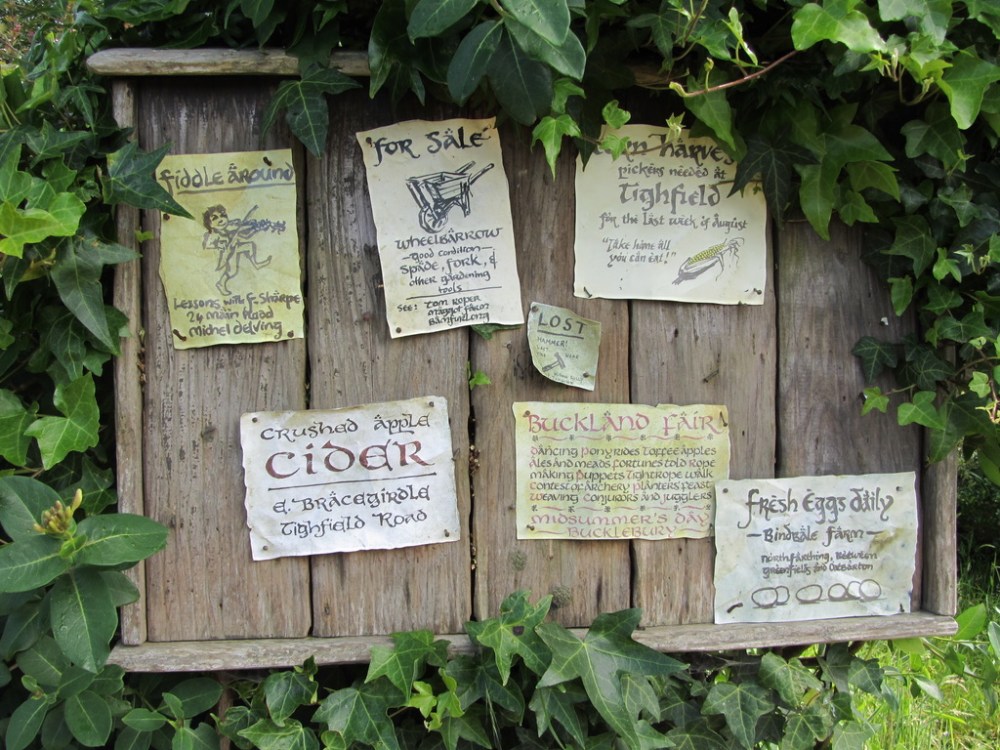 Fiddle Around
Lessons with F. Sharpe
24 Main Road
Michel Delving
For Sale
Wheelbarrow
good condition
Spade, Fork, &
other gardening
tools
See: Tom Roper
Maggot Farm
Bamfurlong
Harves
pickers needed at
Tighfield
for the last week of August
"Take home all
you can eat!"
LOST
HAMMER!
Crushed Apple
CIDER
E. Bracegirdle
Tighfield Road
Buckland Fair
Dancing Pony rides Toffee apples
Ales and meads Fortunes told Rope
making Puppets Tightrope walk
Contest of Archery Planters feast
Weaving Conjurors and jugglers
Midsummer's Day
Bucklebury
Fresh Eggs Daily
Bindbale Farm
Northfarthing, Between
Greenfields and Oatbarton